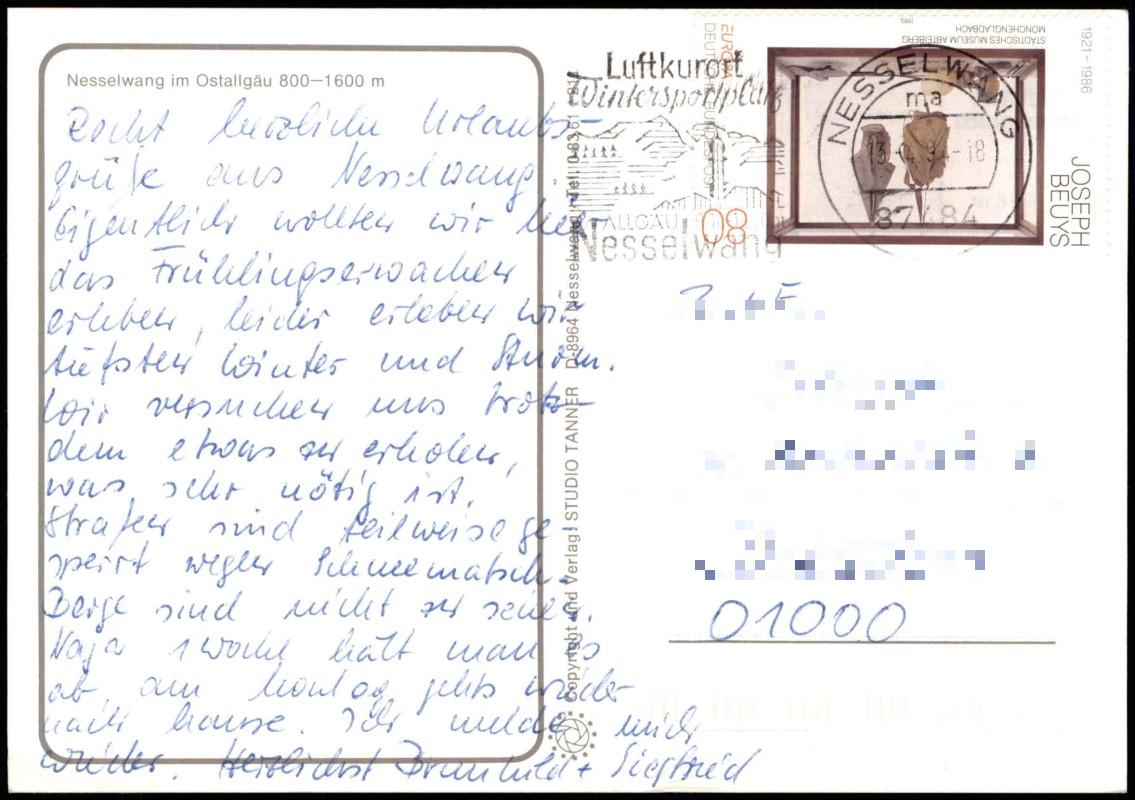 Nesselwang im Ostallgäu 800—1600 m
Recht herzliche Urlaubs-
grüße aus Nesselwang.
Eigentlich wollten wir hier
das Frühlingserwachen
erleben, leider erleben wir
tiefsten Winter und Sturm.
Wir versuchen uns trotz-
dem etwas zu erholen,
was sehr nötig ist.
Straßen sind teilweise ge-
sperrt wegen Schneematsch.
Berge sind nicht zu sehen.
Naja 1 Woche hält man es
ab, am Montag gehts wieder
nach hause. Ich melde mich
wieder. Herzlichst Brunhild + Siegfried
Copyright und Verlag: STUDIO TANNER D-8964 Nesselwang, Tel. 0 83 61
Luftkurort
Wintersportplatz
ALLGÄU
Nesselwang
NESSELWANG
ma
13.-4.94-18
87484
EUROPA
08
1993
STÄDTISCHES MUSEUM ABTEIBERG
MÖNCHENGLADBACH
1921 - 1986
JOSEPH
BEUYS
01000